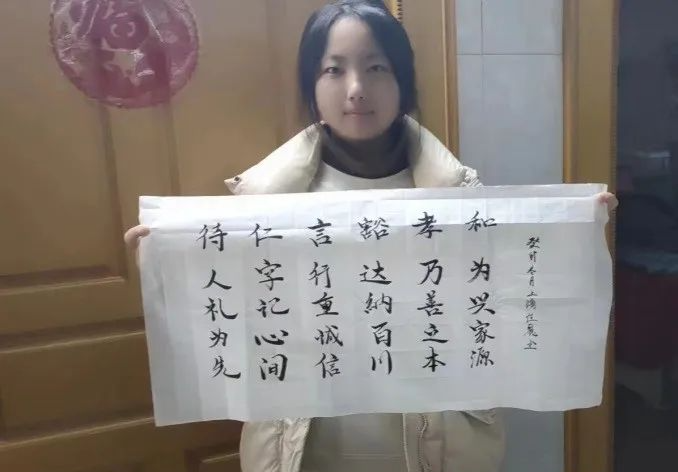 待人礼为先
仁字记心间
言行重诚信
豁达纳百川
孝乃善之本
和为兴家源
癸卯冬月